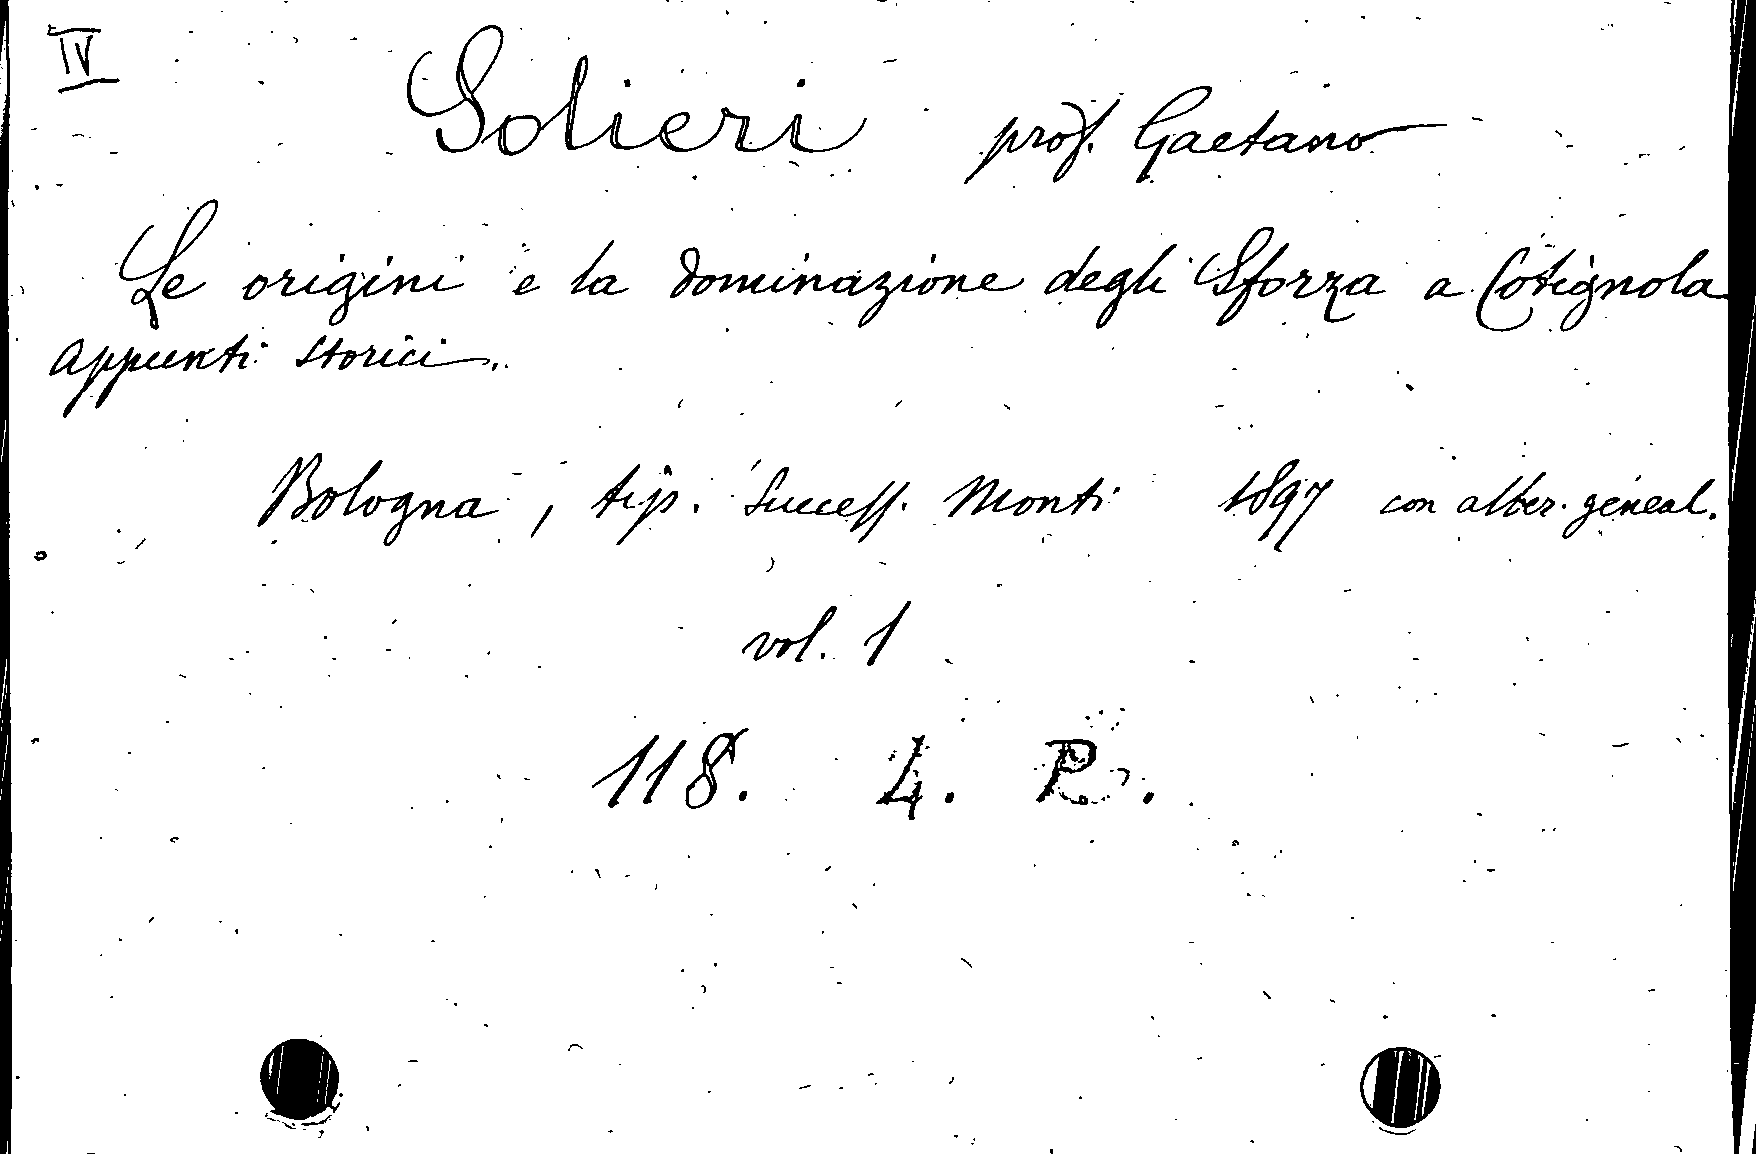 IV
Solieri prof. Gaetano
Le origini e la dominazione degli Sforza a Cotignola
appunti storici.
Bologna, tip. Success. Monti 1897 con alber. geneal.
vol. 1
118. 4. R.